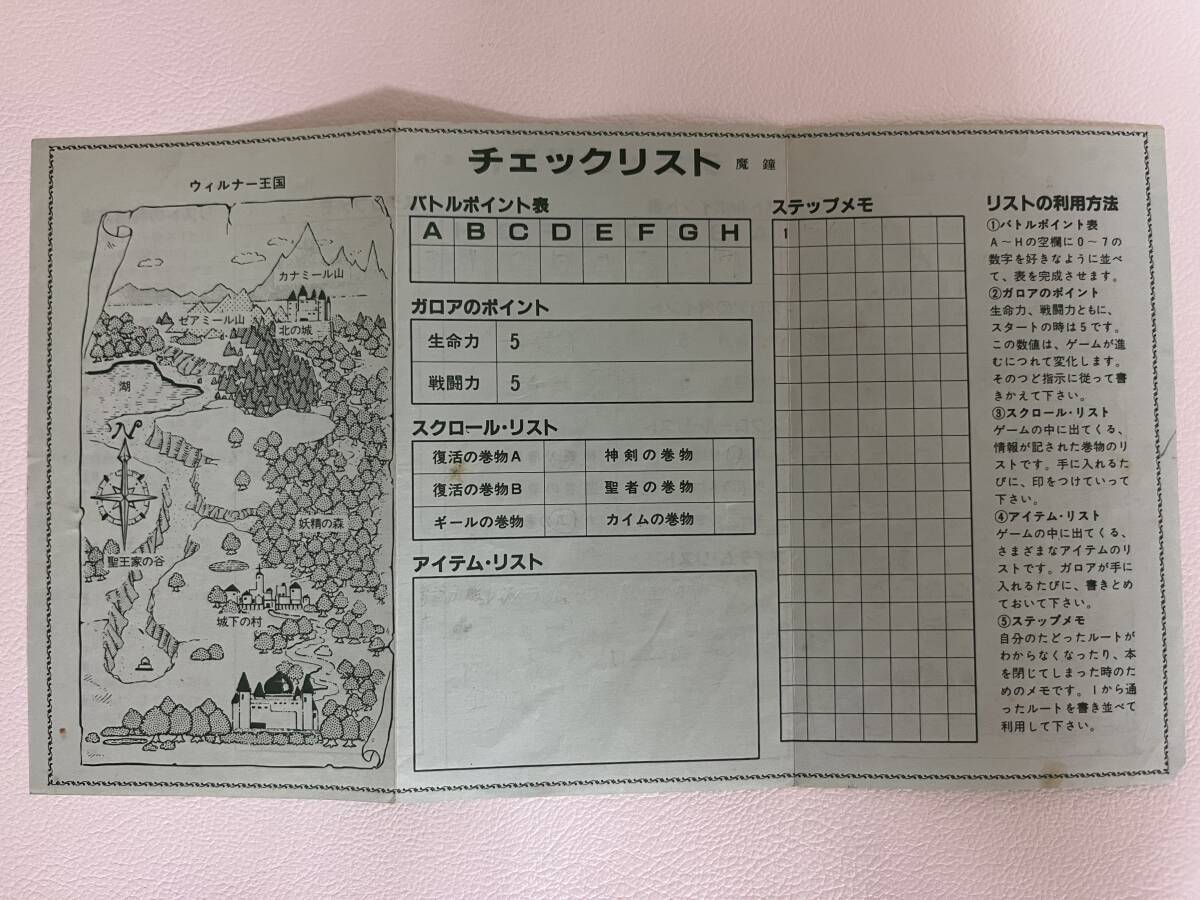 ウィルナー王国
カナミール山
ゼアミール山
北の城
湖
N
妖精の森
聖王家の谷
城下の村
チェックリスト 魔鐘
バトルポイント表
A B C D E F G H
ガロアのポイント
生命力 5
戦闘力 5
スクロール・リスト
復活の巻物A 神剣の巻物
復活の巻物B 聖者の巻物
ギールの巻物 カイムの巻物
アイテム・リスト
ステップメモ
1
リストの利用方法
①バトルポイント表
A～Hの空欄に0～7の
数字を好きなように並べ
て、表を完成させます。
②ガロアのポイント
生命力、戦闘力ともに、
スタートの時は5です。
この数値は、ゲームが進
むにつれて変化します。
そのつど指示に従って書
きかえて下さい。
③スクロール・リスト
ゲームの中に出てくる、
情報が記された巻物のリ
ストです。手に入れるた
びに、印をつけていって
下さい。
④アイテム・リスト
ゲームの中に出てくる、
さまざまなアイテムのリ
ストです。ガロアが手に
入れるたびに、書きとめ
ておいて下さい。
⑤ステップメモ
自分のたどったルートが
わからなくなったり、本
を閉じてしまった時のた
めのメモです。1から通
ったルートを書き並べて
利用して下さい。